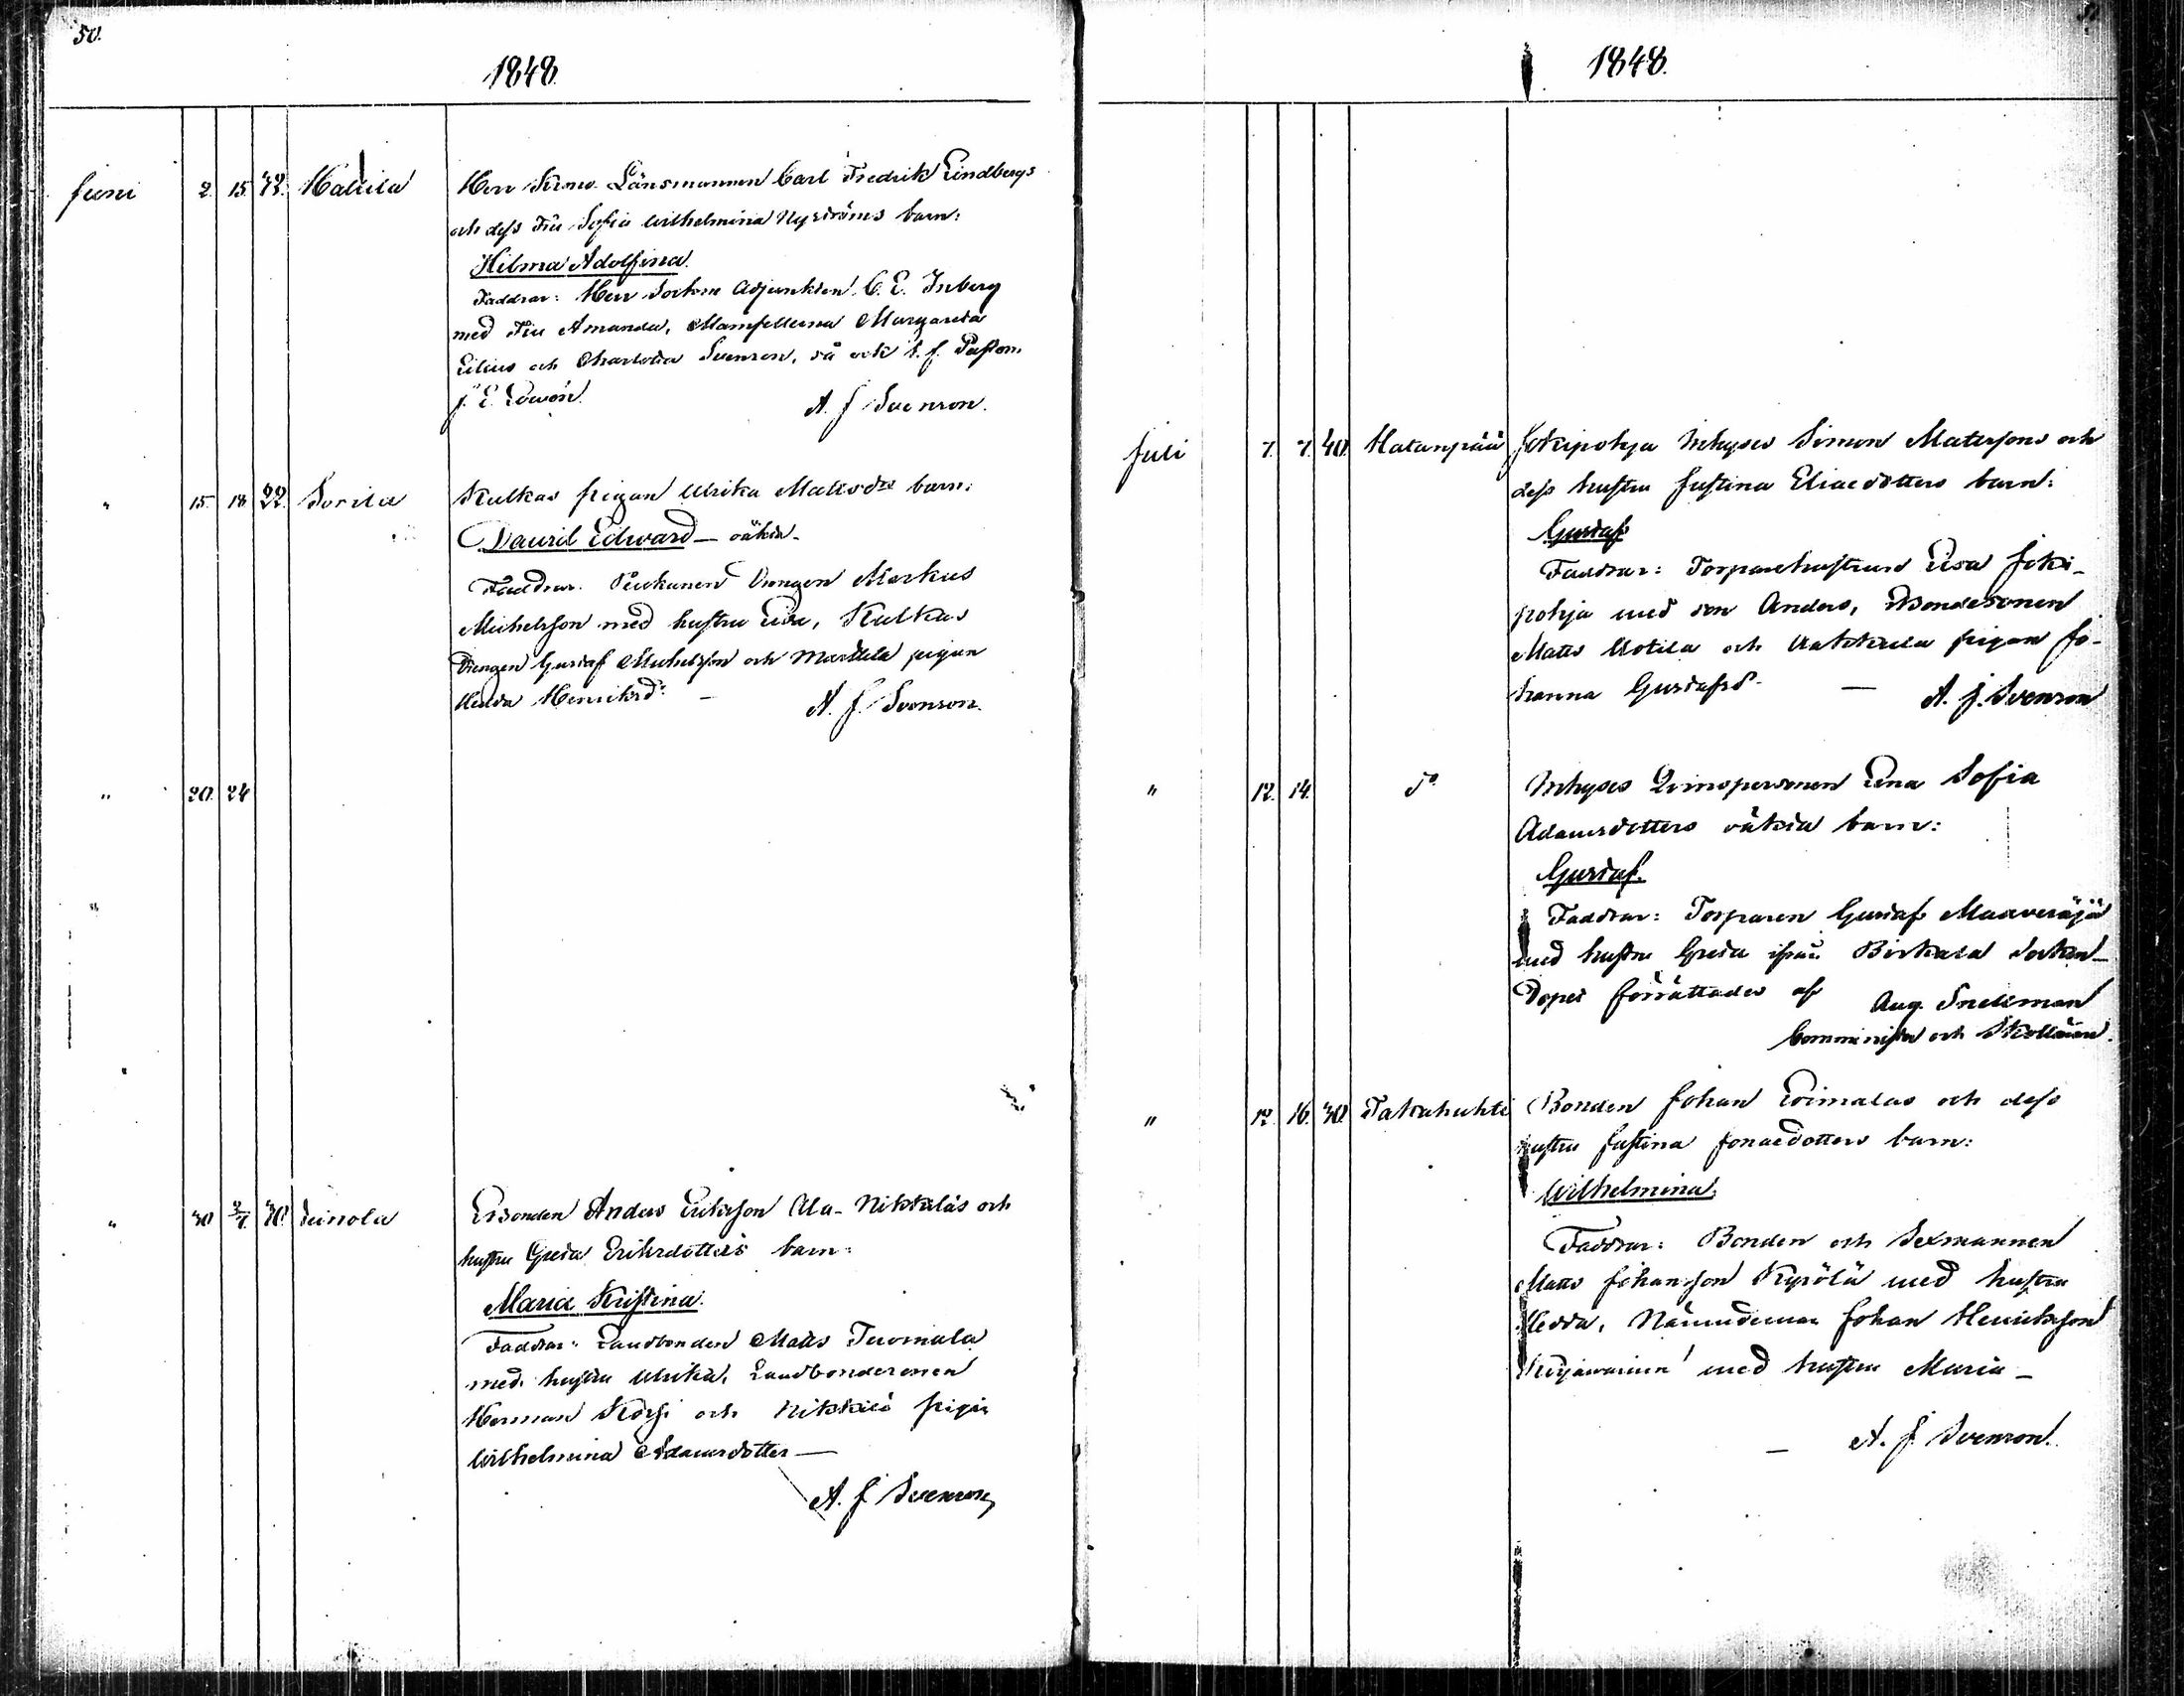 50.
1848
Juni 2. 15. 32. Hallila Herr Krono Länsmannen Carl Fredrik Lindbergs
och dess Fru Sofia Wilhelmina Nyströms barn:
Hilma Adolfina.
Faddrar: Herr Sockne Adjunkten C. E. Inberg
med Fru Amanda, Mamsellerna Margareta
Lilius och Charlotta Svenson, så ock t. f. Pastorn
J. E.
A. J. Svenson.
" 15. 18. 22. Sorila Kulkas pigan Ulrika Mattsdrs barn:
Tauril Edward — oäkta.
Faddrar: Drengen Markus
Michelsson med hustru Lisa, Kulkas
Drengen Gustaf Michelsson och Marttila pigan
Hedda Henriksdr: —
A. J. Svenson.
" 20. 24
"
" 30 2/7. 30. Leinola Bonden Anders Eriksson Ala-Nikkiläs och
hustru Greta Eriksdotters barn:
Maria Kristina.
Faddrar: Landbonden Matts Tuomala
med hustru Ulrika, Landbondesonen
Herman och Nikkilä pigan
Wilhelmina Adamsdotter —
A. J. Svenson
1848.
Juli 7. 7. 40. Hatanpää Jokipohja Inhyses Simon Matssons och
dess hustru Justina Eliaedotters barn:
Gustaf
Faddrar: Torparehustrun Lisa Joki-
pohja med son Anders, Bondesonen
Matts Uotila och pigan Jo-
hanna Gustafsd. —
A. J. Svenson
" 12. 14. do Inhyses Qvinspersonen Lena Sofia
Adamsdotters oäkta barn:
Gustaf.
Faddrar: Torparen Gustaf
med hustru Greta ifrån Birkala Socken —
Dopet förrättades af Aug. Snellman
Comminister och Skollärare.
" 12. 16. 30. Takahuhti Bonden Johan Loimalas och dess
hustru Justina Jonaedotters barn:
Wilhelmina.
Faddrar: Bonden och Sexmannen
Matts Johansson Kyrölä med hustru
Hedda, Nämndeman Johan Henriksson
med hustru Maria —
— A. J. Svenson.